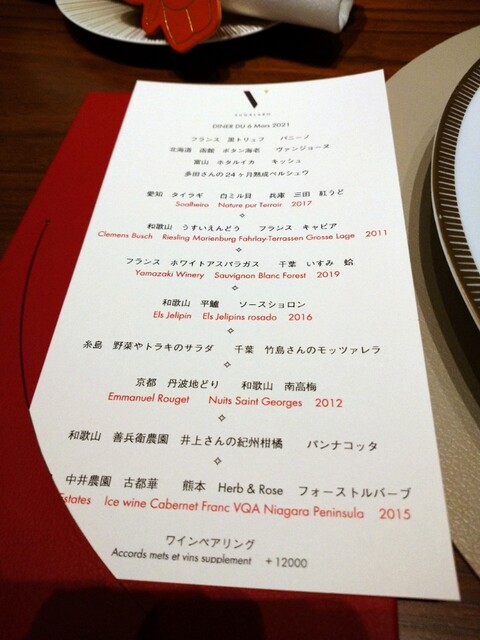 DINER DU 6 Mars 2021
フランス 黒トリュフ パニーノ
北海道 函館 ボタン海老 ヴァンジョーヌ
富山 ホタルイカ キッシュ
多田さんの24ヶ月熟成ペルシュウ
愛知 タイラギ 白ミル貝 兵庫 三田 紅うど
Soalheiro Nature pur Terroir 2017
和歌山 うすいえんどう フランス キャビア
Clemens Busch Riesling Marienburg Fahrlay-Terrassen Grosse Lage 2011
フランス ホワイトアスパラガス 千葉 いすみ 蛤
Yamazaki Winery Sauvignon Blanc Forest 2019
和歌山 平鱸 ソースショロン
Els Jelipin Els Jelipins rosado 2016
糸島 野菜やトラキのサラダ 千葉 竹島さんのモッツァレラ
京都 丹波地どり 和歌山 南高梅
Emmanuel Rouget Nuits Saint Georges 2012
和歌山 善兵衛農園 井上さんの紀州柑橘 パンナコッタ
中井農園 古都華 熊本 Herb & Rose フォーストルバーブ
Estates Ice wine Cabernet Franc VQA Niagara Peninsula 2015
ワインペアリング
Accords mets et vins supplement +12000